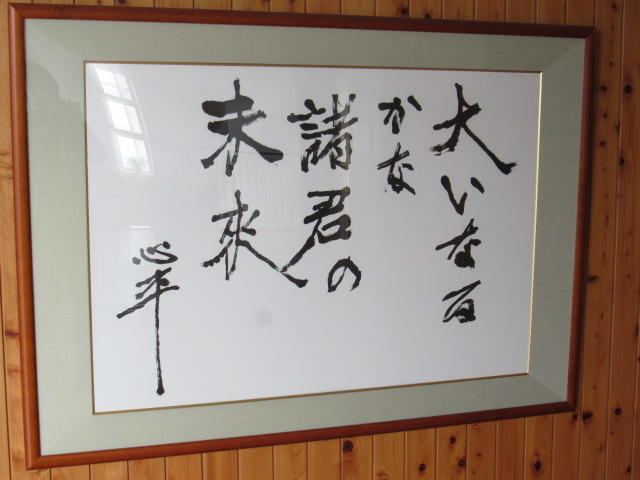 大いなる
かな
諸君の
未来
心平